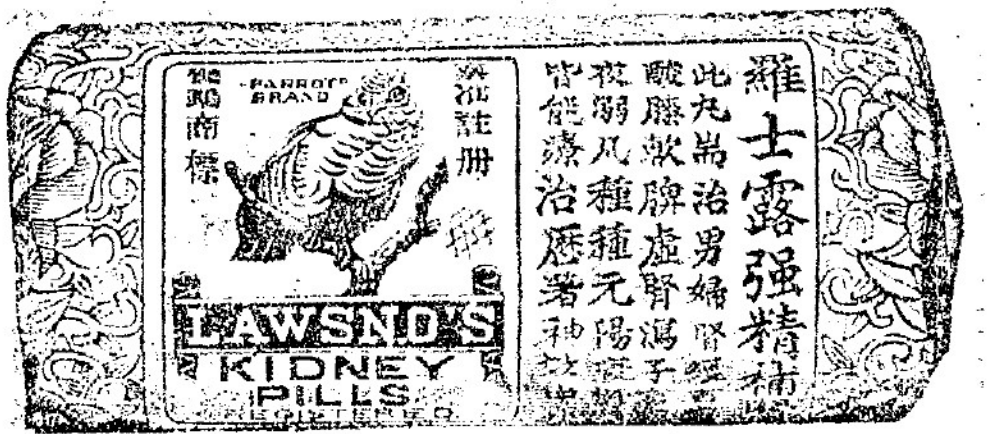 "PARROT"
BRAND
註册
商標
LAWSND'S
KIDNEY
PILLS
REGISTERED
羅士露强精補
此丸耑治男婦腎
酸腰軟脾虛腎瀉子
夜溺凡種種元陽
皆能療治歷著神效